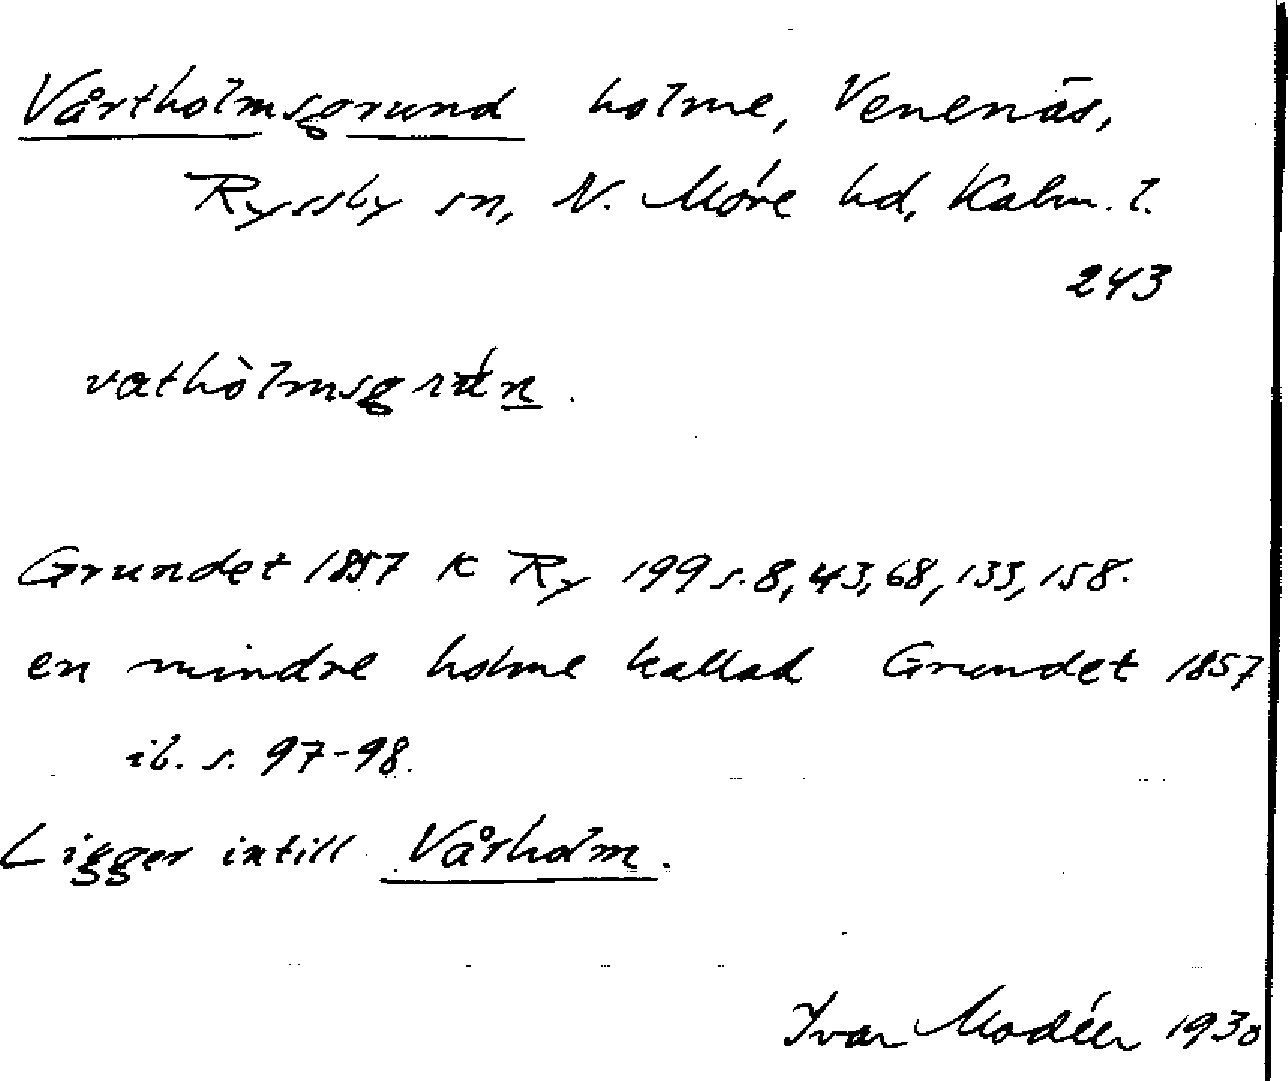 Vårtholmsgrund holme, Venenäs,
Ryssby sn, N. Möre hd, Kalm. l.
243
vathòlmsgrún.
Grundet 1857 K Ry 199 s. 8, 43, 68, 133, 158.
en mindre holme kallad Grundet 1857
ib. s. 97-98.
Ligger intill Vårholm.
Ivar Modéer 1930